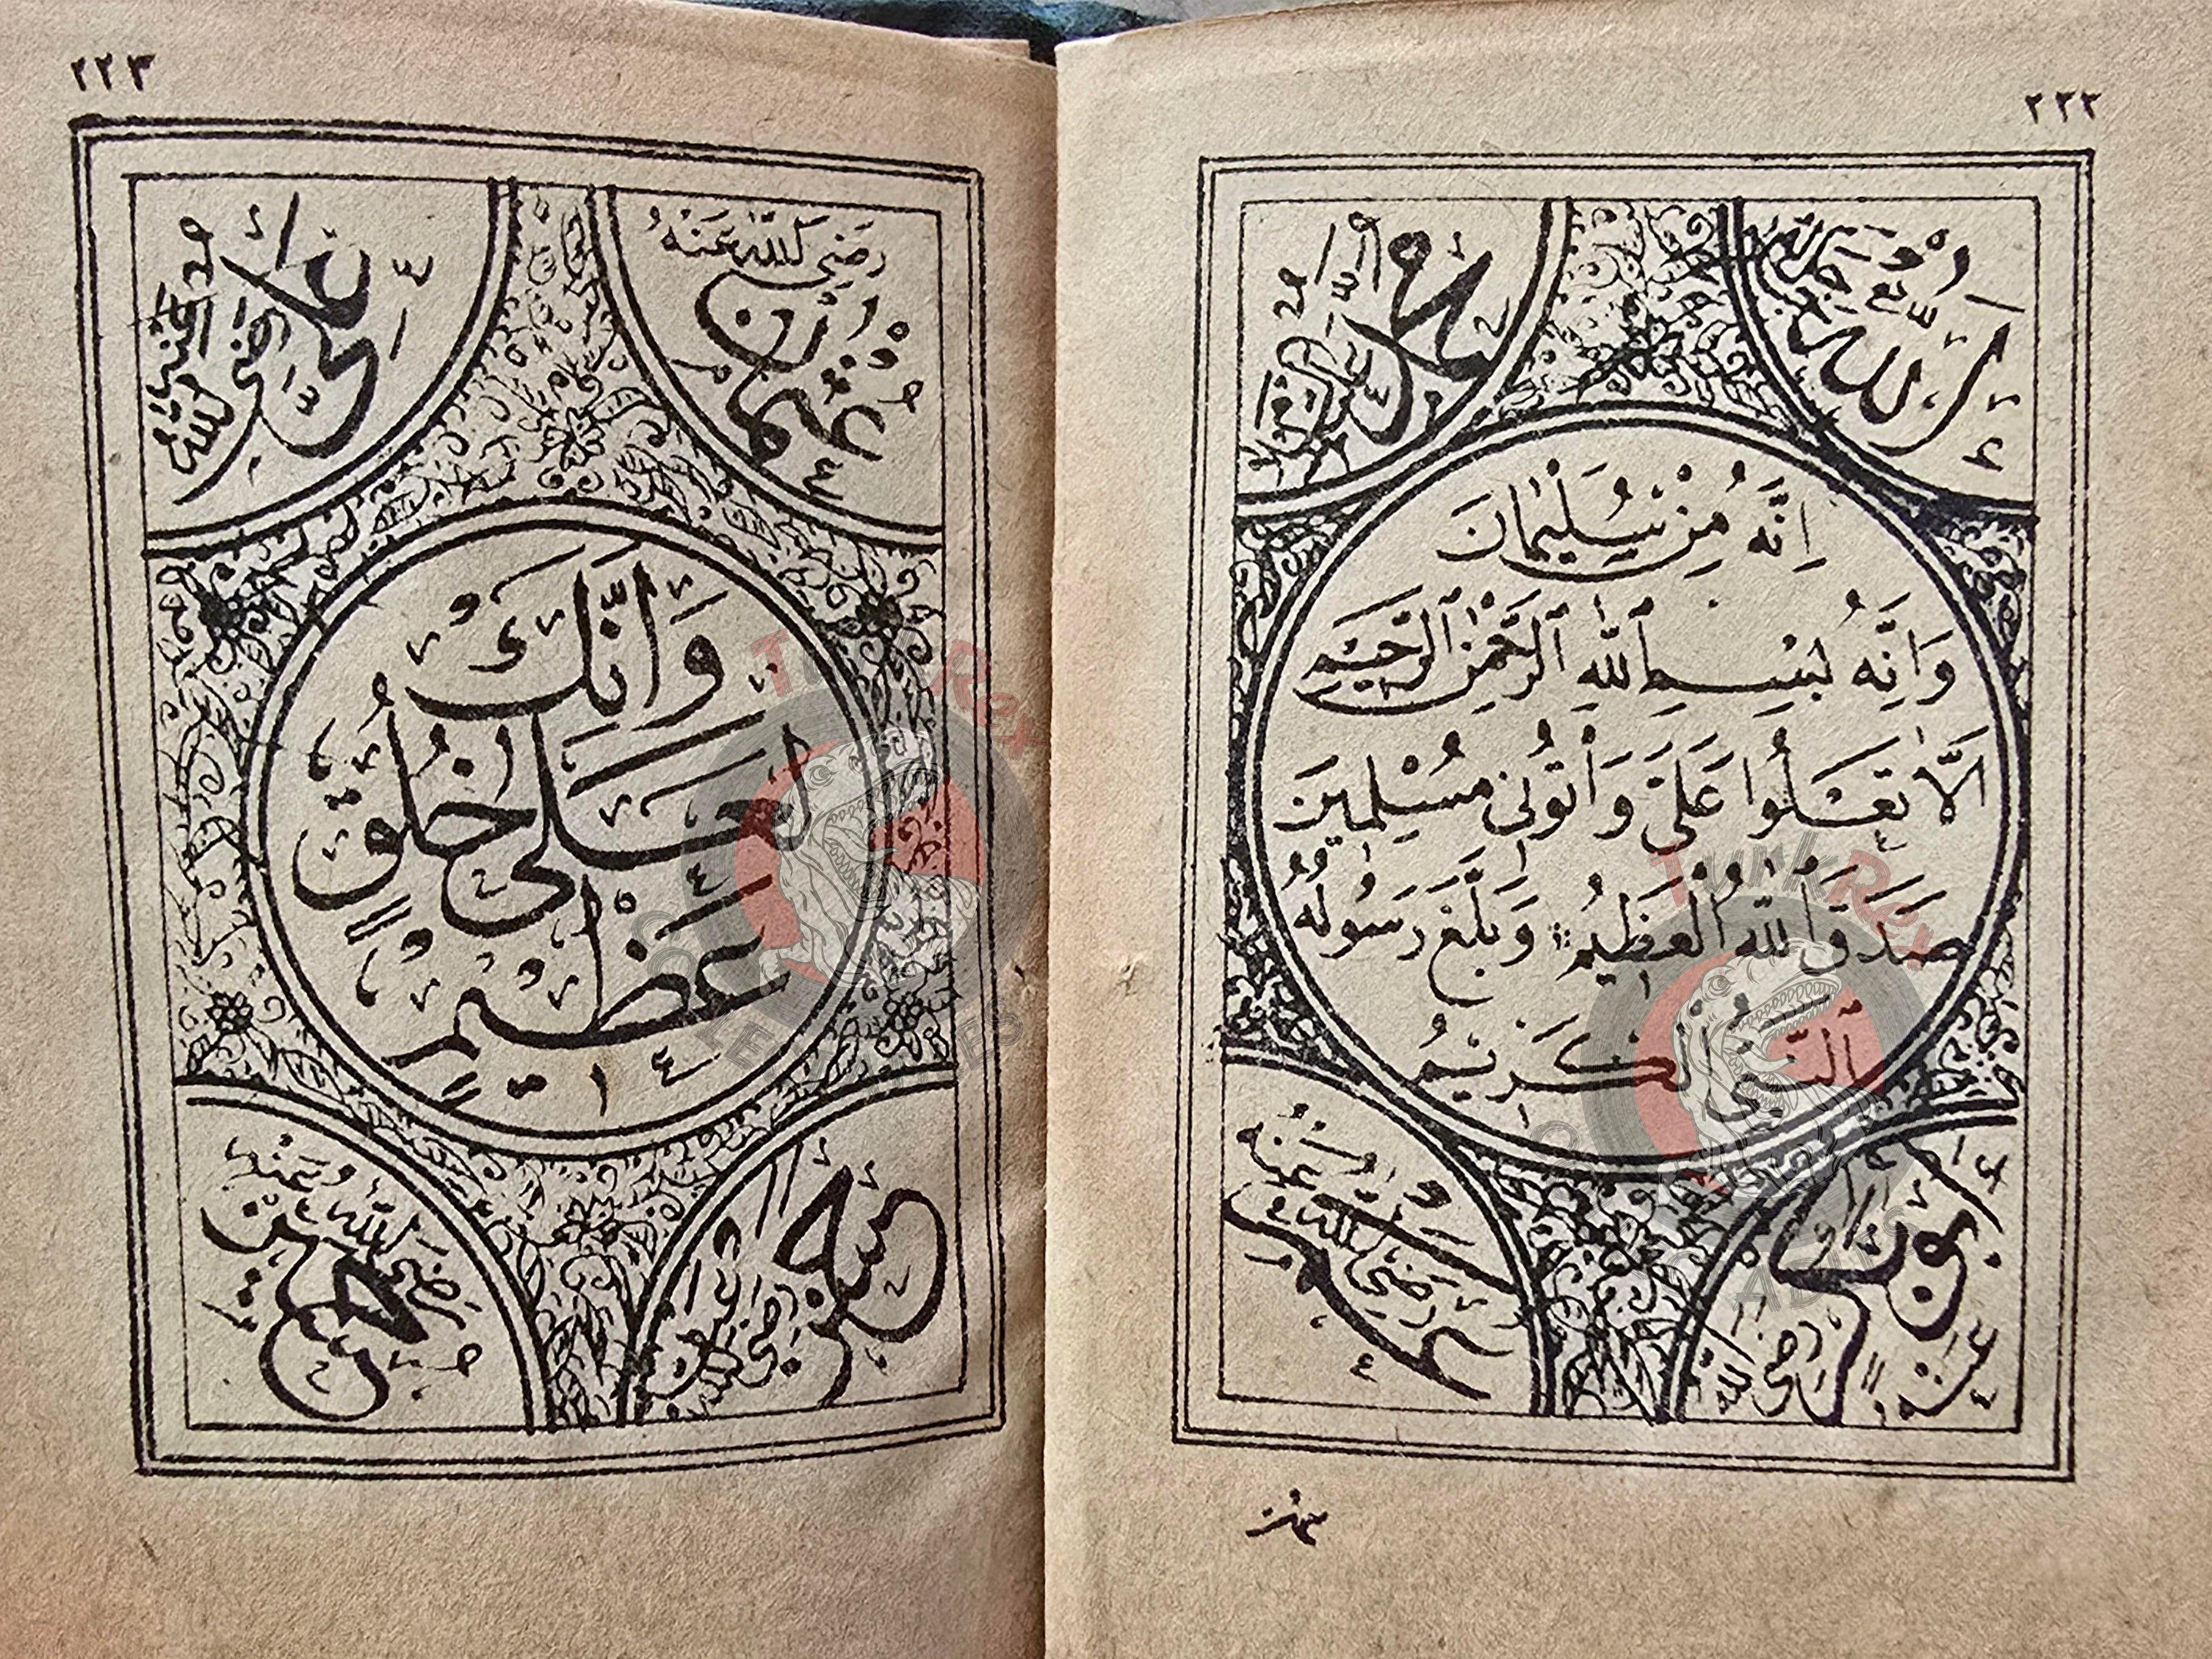 ٢٢٢
الله جل جلاله
محمد
اِنَّهُ مِنْ سُلَيْمٰانَ
وَاِنَّهُ بِسْمِ اللّٰهِ الرَّحْمٰنِ الرَّحِيمِ
اَلَّا تَعْلُوا عَلَىَّ وَأْتُونِى مُسْلِمِينَ
صَدَقَ اللّٰهُ الْعَظِيمُ وَبَلَّغَ رَسُولُهُ
اَلنَّبِىُّ الْكَرِيمُ
ابو بكر رضى الله عنه
عمر رضى الله عنه
٢٢٣
عثمان رضى الله عنه
على رضى الله عنه
وَاِنَّكَ
لَعَلٰى خُلُقٍ
عَظِيمٍ
حسن رضى الله
حسين رضى الله عنه
TurkRex
TurkRex